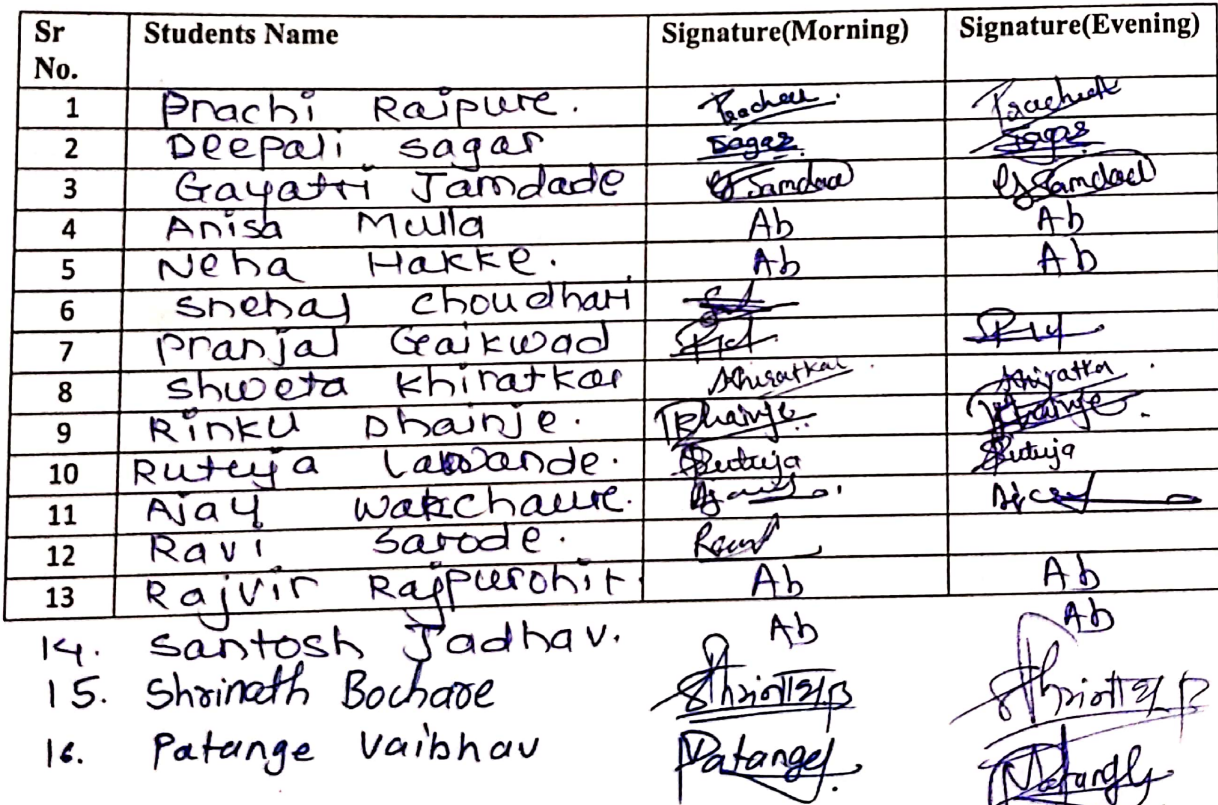 Sr No. Students Name Signature(Morning) Signature(Evening)
1 Prachi Rajpure.
2 Deepali sagar Sagar Sagar
3 Gayatri Jamdade
4 Anisa Mulla Ab Ab
5 Neha Hakke. Ab Ab
6 Snehal choudhari
7 Pranjal Gaikwad
8 Shweta Khiratkar Khiratkar
9 Rinku Dhainje. Dhainje
10 Rutuja Lawande. Rutuja Rutuja
11 Ajay Wakchaure.
12 Ravi Sarode.
13 Rajvir Rajpurohit Ab Ab
14. Santosh Jadhav. Ab Ab
15. Shrinath Bochare
16. Patange Vaibhav Patange